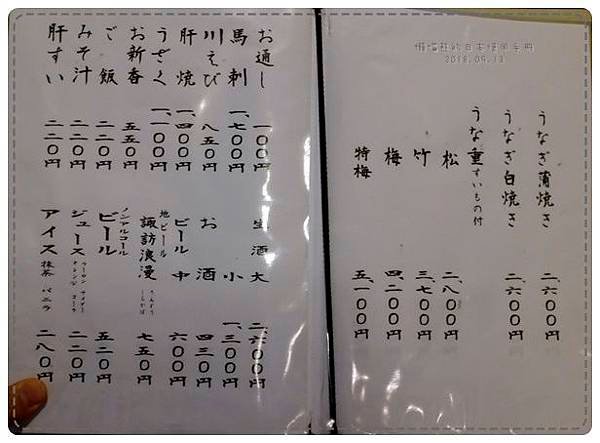 うなぎ蒲焼き 二、六〇〇円
うなぎ白焼き 二、六〇〇円
うな重 すいもの付
松 二、八〇〇円
竹 三、七〇〇円
梅 四、二〇〇円
特梅 五、一〇〇円
お通し 一〇〇円
馬刺 一、七〇〇円
川えび 八五〇円
肝焼 一、四〇〇円
うざく 一、一〇〇円
お新香 五五〇円
ご飯 二二〇円
みそ汁 二二〇円
肝すい 二二〇円
生酒 大 二、六〇〇円
小 一、三〇〇円
お酒 四三〇円
ビール 中 六〇〇円
地ビール 諏訪浪漫 七五〇円
ノンアルコール ビール 五二〇円
ジュース 二二〇円
アイス 抹茶 バニラ 二八〇円
2018.09.13